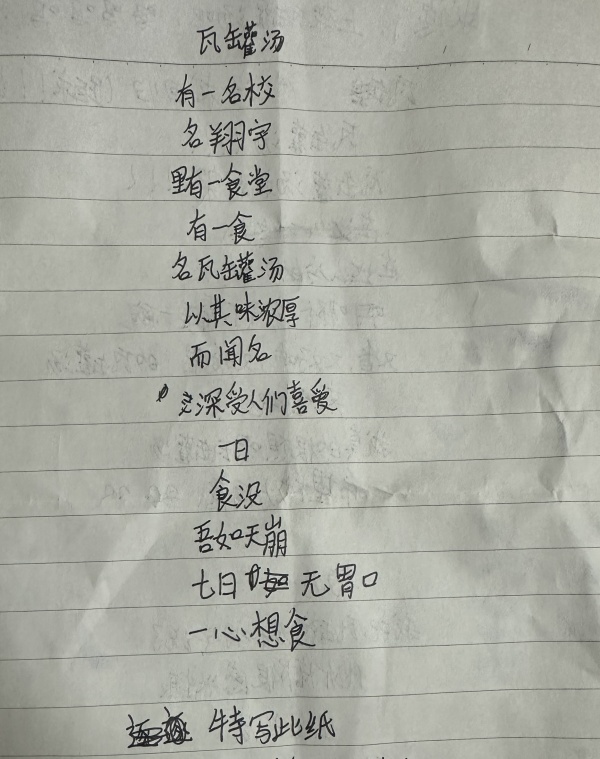 瓦罐汤
有一名校
名翔宇
里有一食堂
有一食
名瓦罐汤
以其味浓厚
而闻名
深受人们喜爱
一日
食没
吾如天崩
七日无胃口
一心想食
特写此纸